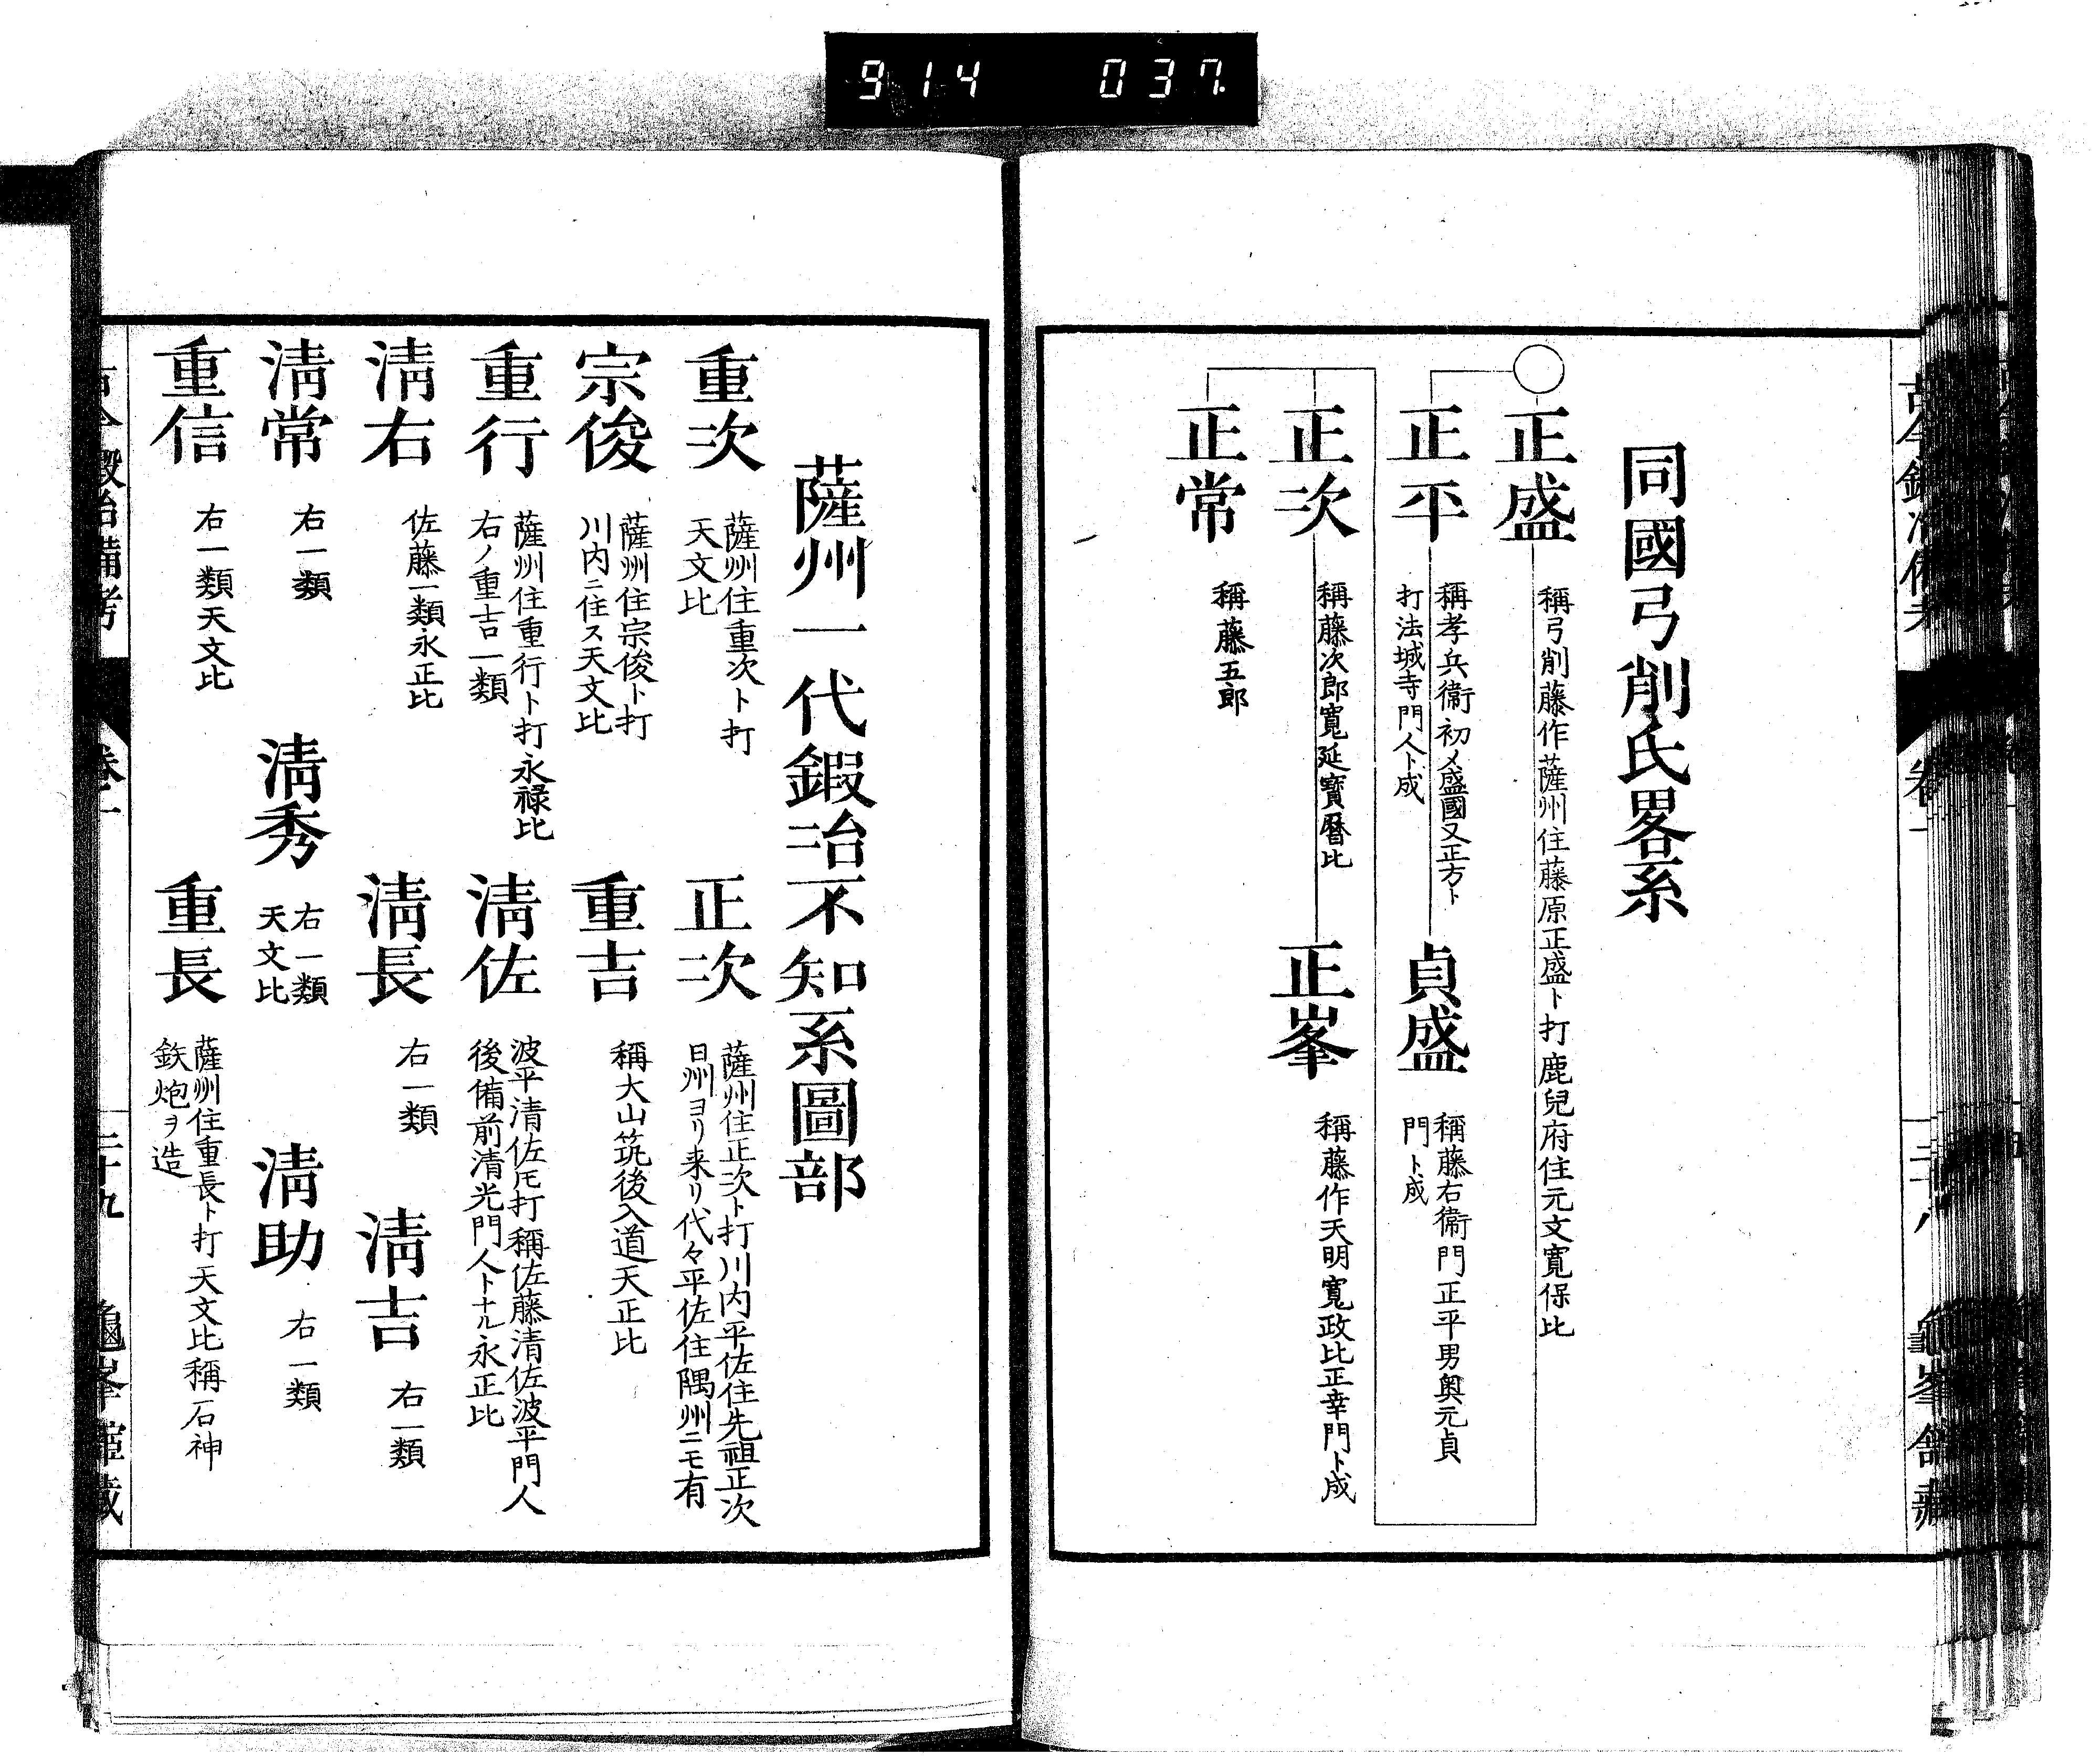 914 037
同國弓削氏畧系
正盛
稱弓削藤作薩州住藤原正盛ト打鹿兒府住元文寬保比
正平
稱孝兵衞初メ盛國又正方ト
打法城寺門人ト成
貞盛
稱藤右衞門正平男奥元貞
門ト成
正次
稱藤次郎寬延寶曆比
正峯
稱藤作天明寬政比正幸門ト成
正常
稱藤五郎
薩州一代鍜冶不知系圖部
重次
薩州住重次ト打
天文比
正次
薩州住正次ト打川内平佐住先祖正次
日州ヨリ来リ代々平佐住隅州ニモ有
宗俊
薩州住宗俊ト打
川内ニ住ス天文比
重吉
稱大山筑後入道天正比
重行
薩州住重行ト打永禄比
右ノ重吉一類
淸佐
波平清佐𪜈打稱佐藤清佐波平門人
後備前清光門人トナル永正比
淸右
佐藤一類永正比
淸長
右一類
淸吉
右一類
淸常
右一類
淸秀
右一類
天文比
淸助
右一類
重信
右一類天文比
重長
薩州住重長ト打天文比稱石神
鉄炮ヲ造
二十九